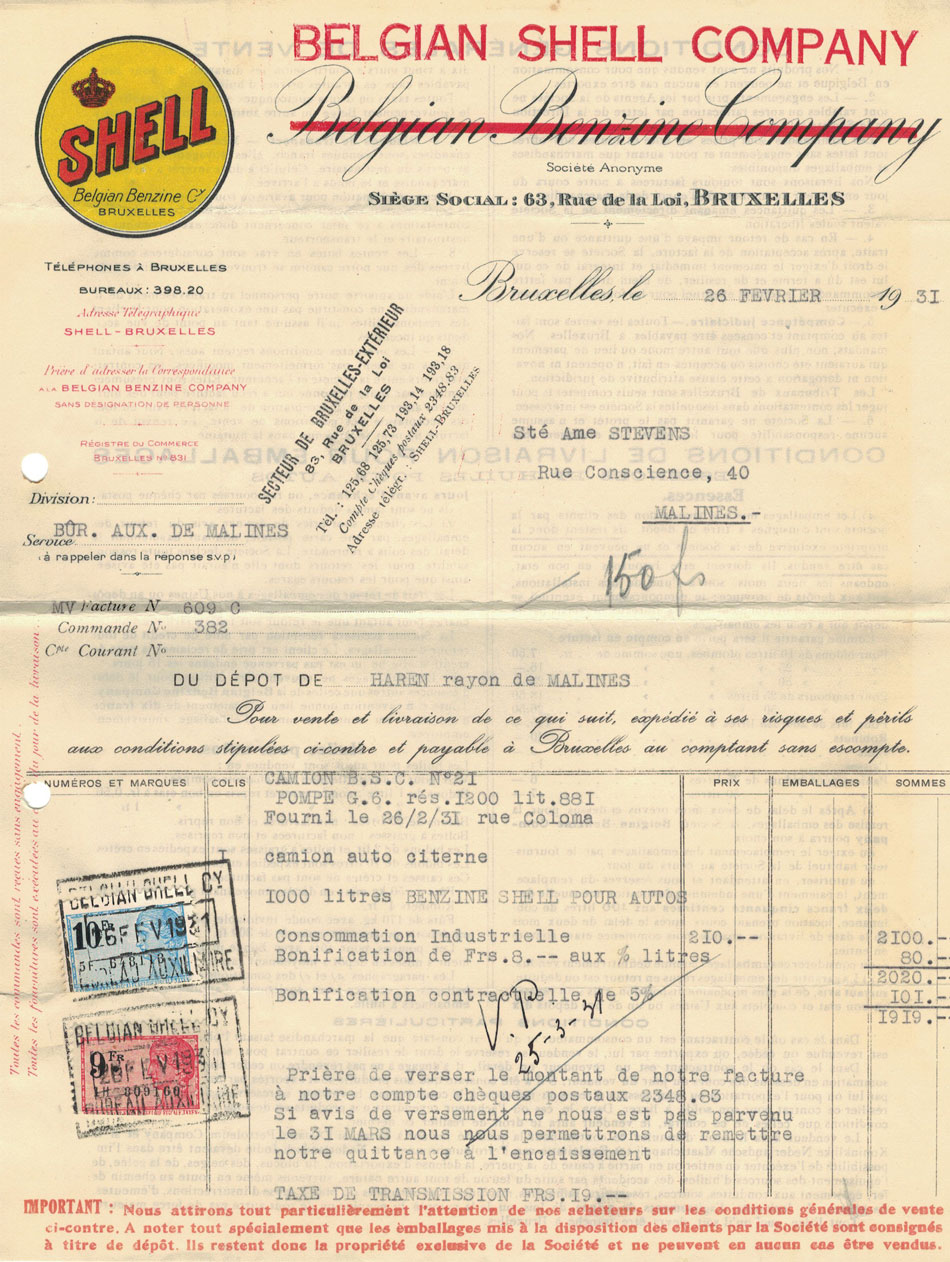 BELGIAN SHELL COMPANY
Belgian Benzine Company
Société Anonyme
SIÈGE SOCIAL : 63, Rue de la Loi, BRUXELLES
SHELL
Belgian Benzine Cy
BRUXELLES
TÉLÉPHONES À BRUXELLES
BUREAUX : 398.20
Adresse Télégraphique
SHELL - BRUXELLES
Prière d'adresser la Correspondance
A LA BELGIAN BENZINE COMPANY
SANS DESIGNATION DE PERSONNE
REGISTRE DU COMMERCE
BRUXELLES No 831
Bruxelles, le 26 FEVRIER 1931
SECTEUR DE BRUXELLES-EXTÉRIEUR
83, Rue de la Loi
BRUXELLES
Tél. : 125,68 125,73 193,14 193,18
Compte Chèques postaux 2348.83
Adresse télégr. : SHELL-BRUXELLES
Sté Ame STEVENS
Rue Conscience, 40
MALINES.-
Division :
BÛR. AUX. DE MALINES
Service
(à rappeler dans la réponse s.v.p.)
150 fs
MV Facture No 609 C
Commande No 382
Cpte Courant No
DU DÉPOT DE HAREN rayon de MALINES
Pour vente et livraison de ce qui suit, expédié à ses risques et périls
aux conditions stipulées ci-contre et payable à Bruxelles au comptant sans escompte.
NUMÉROS ET MARQUES COLIS PRIX EMBALLAGES SOMMES
CAMION B.S.C. N°21
POMPE G.6. rés.I200 lit.88I
Fourni le 26/2/31 rue Coloma
I camion auto citerne
I000 litres BENZINE SHELL POUR AUTOS
Consommation Industrielle 2I0.-- 2I00.--
Bonification de Frs.8.-- aux % litres 80.--
2020.--
Bonification contractuelle de 5% I0I.--
I9I9.--
V.P.
25-3-31
Prière de verser le montant de notre facture
à notre compte chèques postaux 2348.83
Si avis de versement ne nous est pas parvenu
le 3I MARS nous nous permettrons de remettre
notre quittance à l'encaissement
TAXE DE TRANSMISSION FRS.I9.--
BELGIAN SHELL CY
10 Fr
26 FEV 1931
BUREAU AUXILIAIRE
BELGIAN SHELL CY
9 Fr
26 FEV 1931
BUREAU AUXILIAIRE
Toutes les commandes sont reçues sans engagement.
Toutes les fournitures sont exécutées au du jour de la livraison.
IMPORTANT : Nous attirons tout particulièrement l'attention de nos acheteurs sur les conditions générales de vente
ci-contre. A noter tout spécialement que les emballages mis à la disposition des clients par la Société sont consignés
à titre de dépôt. Ils restent donc la propriété exclusive de la Société et ne peuvent en aucun cas être vendus.